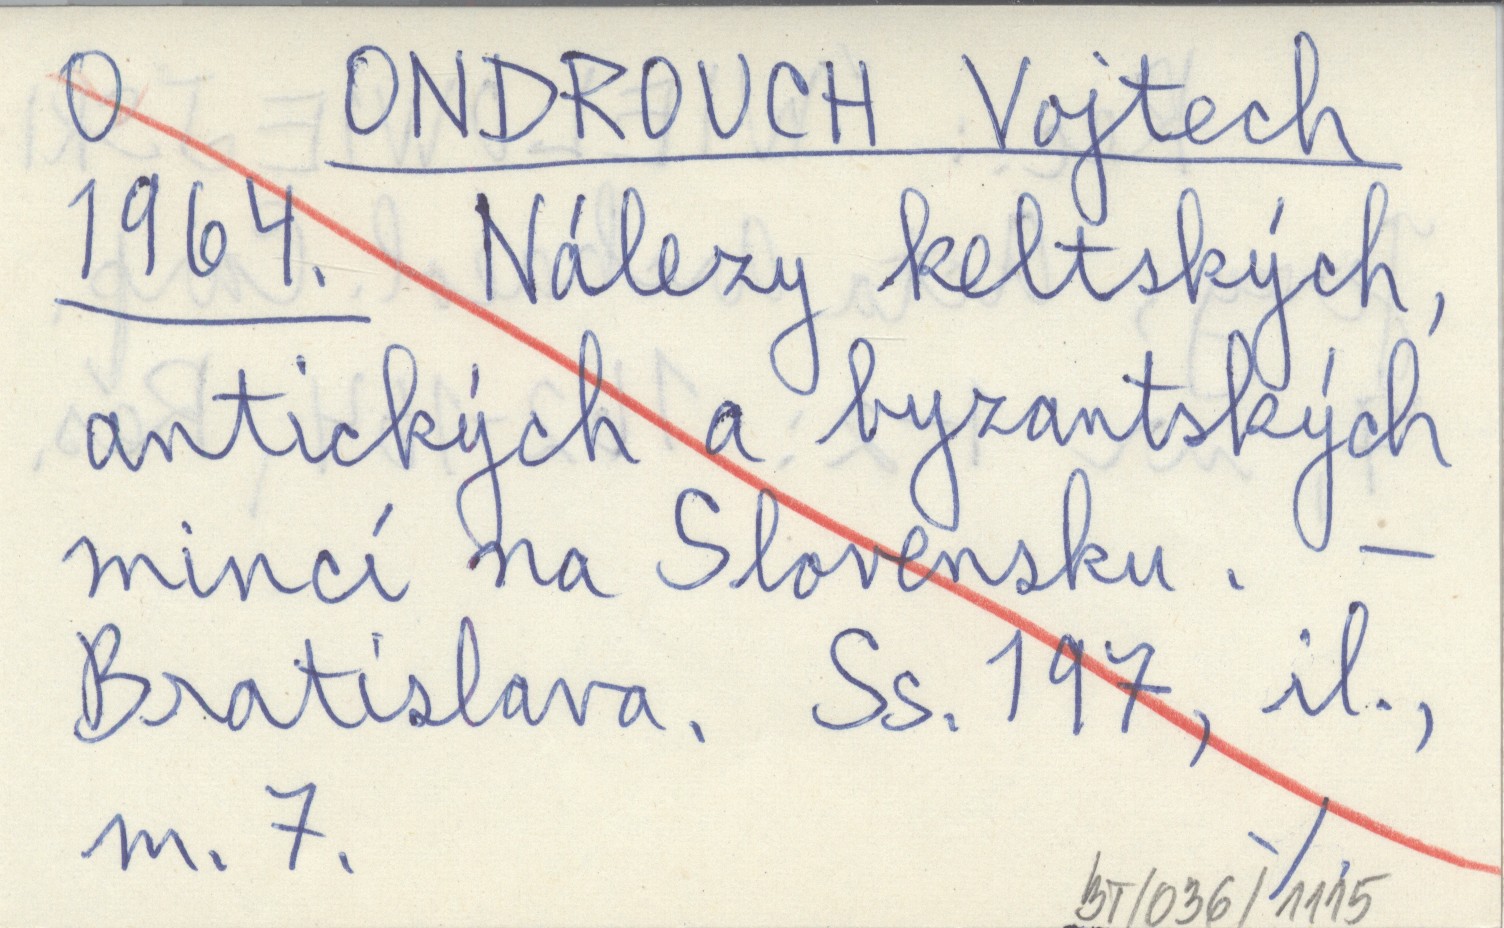 O ONDROUCH Vojtech
1964. Nálezy keltských,
antických a byzantských
mincí na Slovensku. –
Bratislava. Ss. 197, il.,
m. 7.
BT/036/1115